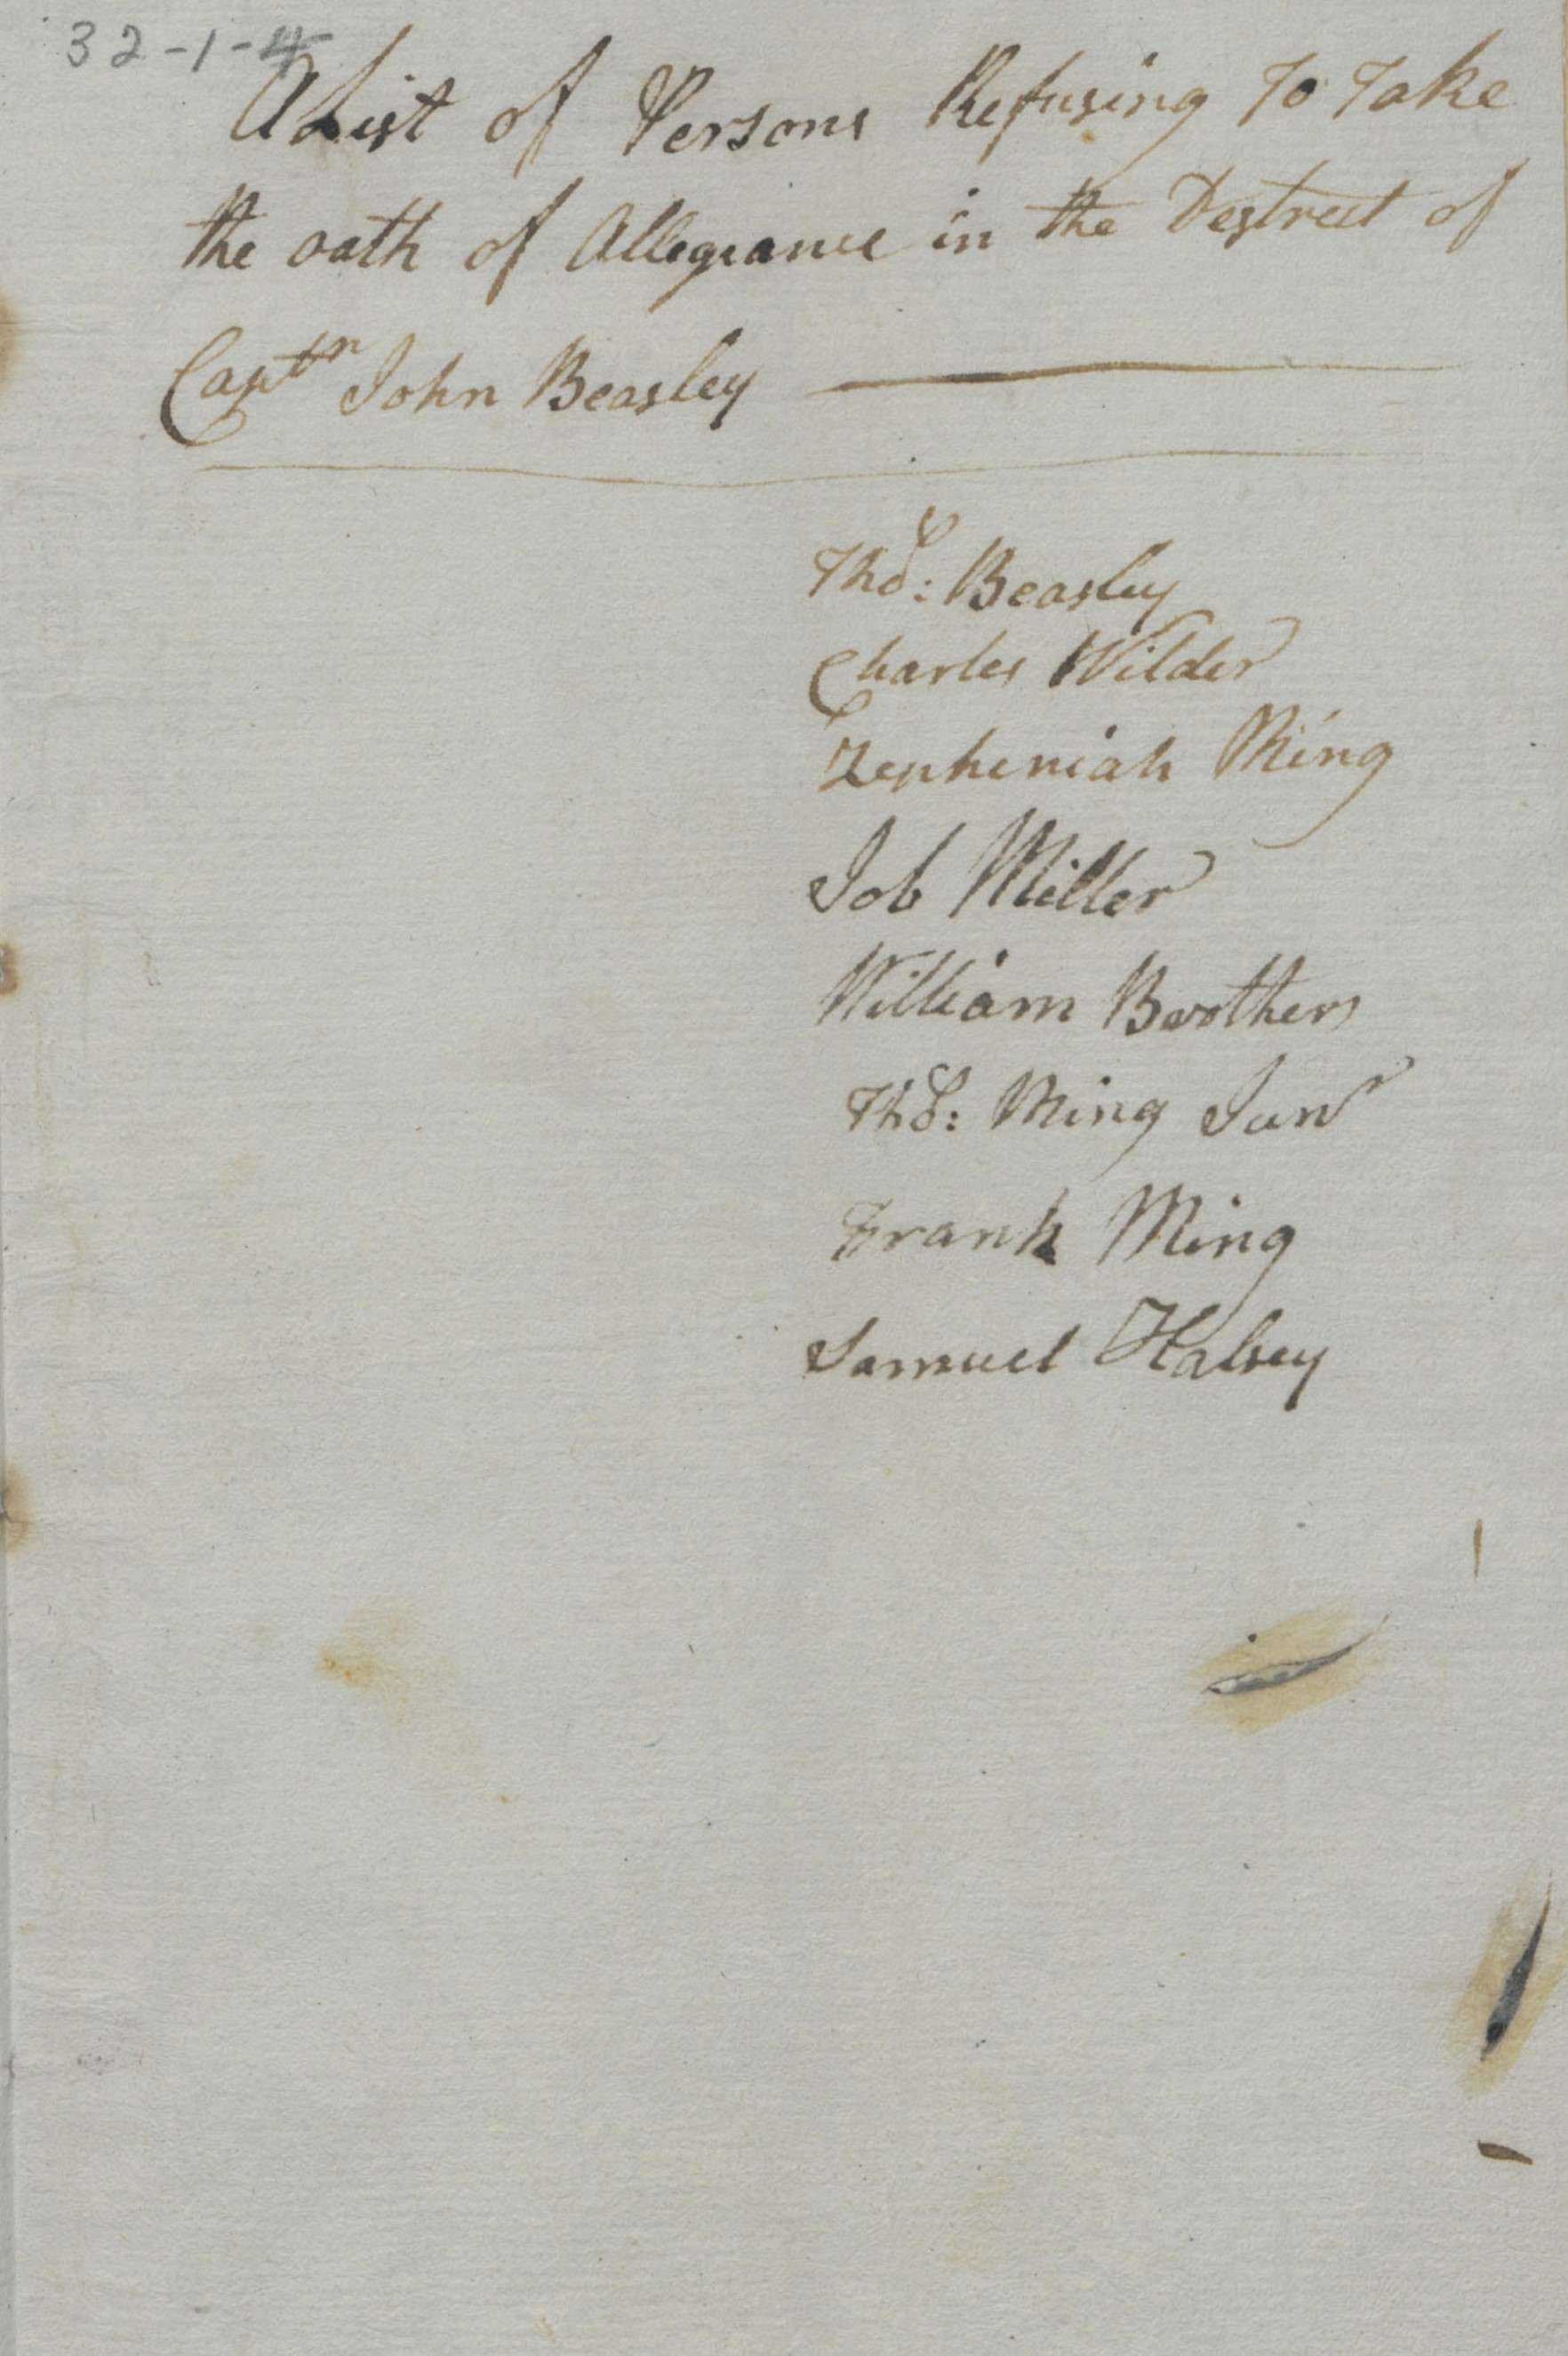 32-1-4
A List of Persons Refusing To Take
the oath of Allegiance in the Destrect of
Captn John Beasley
Thos: Beasley
Charles Wilder
Zepheniah Ming
Job Miller
William Brothers
Thos: Ming Junr
Frank Ming
Samuel Halsey